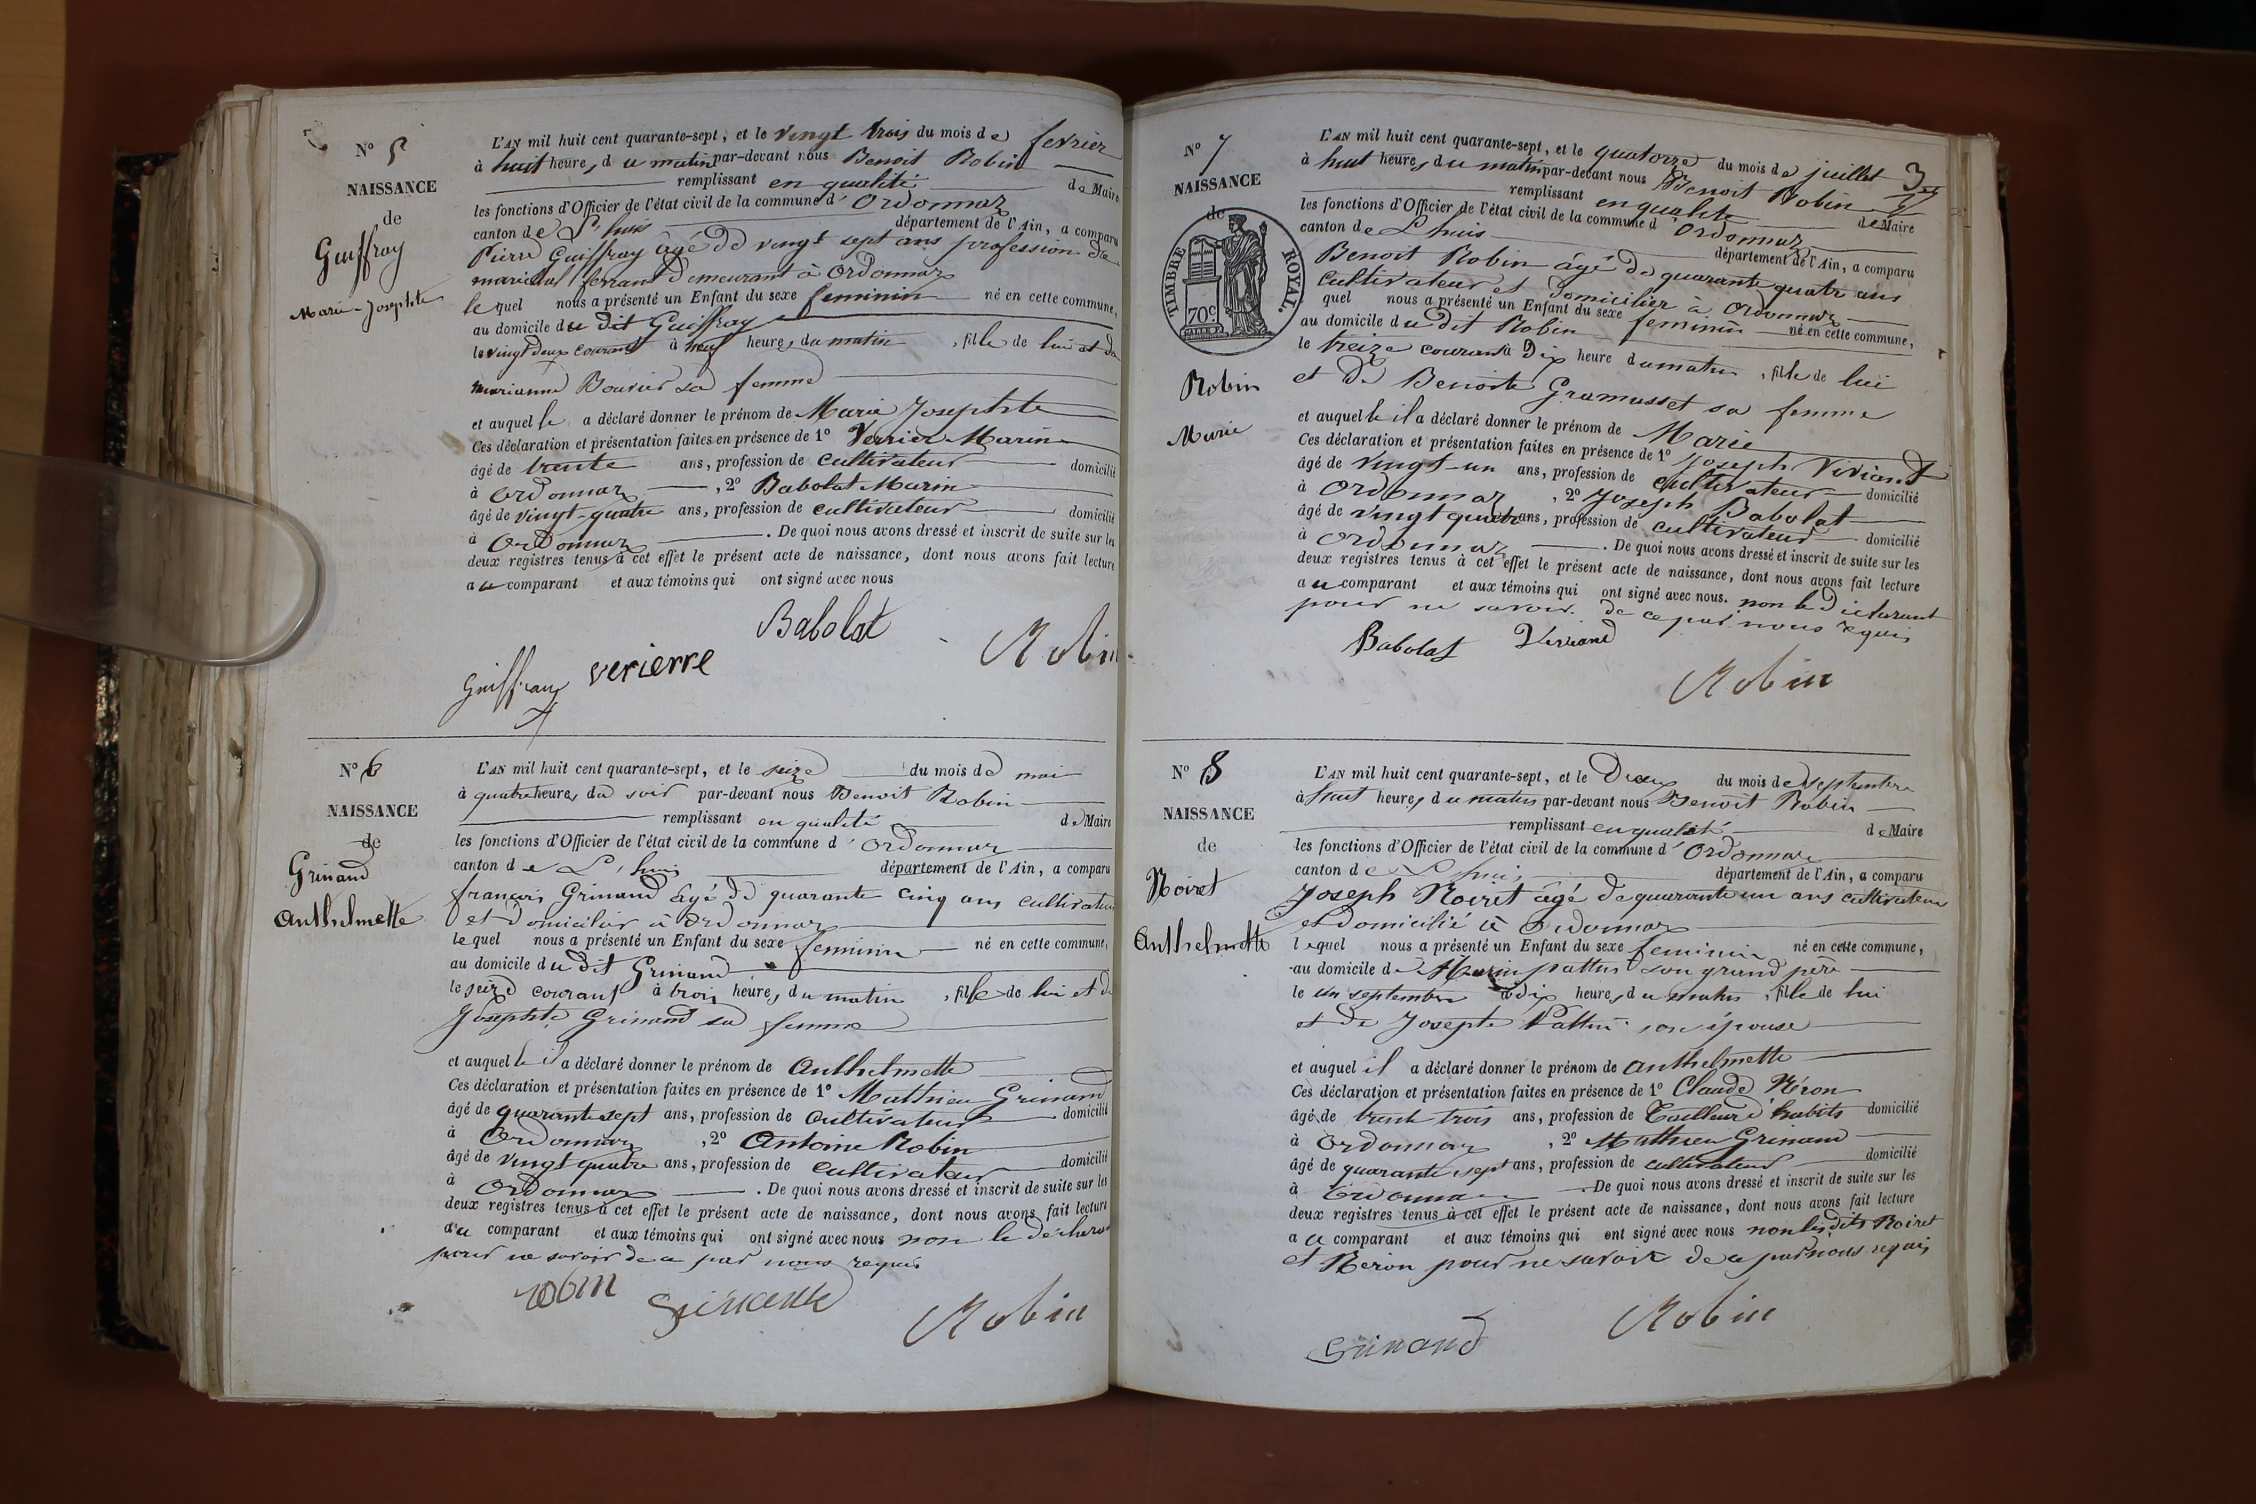 N° 5
NAISSANCE
de
Guiffray
Marie-Josephte
L'AN mil huit cent quarante-sept, et le vingt trois du mois de fevrier
à huit heures du matin par-devant nous Benoit Robin
remplissant en qualité de Maire
les fonctions d'Officier de l'état civil de la commune d' Ordonnaz
canton de L'huis département de l'Ain, a comparu
Pierre Guiffray âgé de vingt sept ans profession de
marechal ferrand demeurant à Ordonnaz
le quel nous a présenté un Enfant du sexe feminin né en cette commune,
au domicile du dit Guiffray
le vingt deux courant à neuf heures du matin, fille de lui et de
marianne Bouvier sa femme
et auquel le a déclaré donner le prénom de Marie Josephte
Ces déclaration et présentation faites en présence de 1° Verrier Marin
âgé de trente ans, profession de cultivateur domicilié
à Ordonnaz, 2° Babolat Marin
âgé de vingt-quatre ans, profession de cultivateur domicilié
à Ordonnaz. De quoi nous avons dressé et inscrit de suite sur les
deux registres tenus à cet effet le présent acte de naissance, dont nous avons fait lecture
au comparant et aux témoins qui ont signé avec nous
Babolat
Robin
Guiffray verierre
N° 6
NAISSANCE
de
Grinand
Anthelmette
L'AN mil huit cent quarante-sept, et le seize du mois de mai
à quatre heures du soir par-devant nous Benoit Robin
remplissant en qualité de Maire
les fonctions d'Officier de l'état civil de la commune d' Ordonnaz
canton de L'huis département de l'Ain, a comparu
françois Grinand âgé de quarante cinq ans cultivateur
et domicilier à Ordonnaz
le quel nous a présenté un Enfant du sexe feminin né en cette commune,
au domicile du dit Grinand
le seize courant à trois heures du matin, fille de lui et de
Josephte Grinand sa femme
et auquel le il a déclaré donner le prénom de Anthelmette
Ces déclaration et présentation faites en présence de 1° Mathieu Grinand
âgé de quarante sept ans, profession de cultivateur domicilié
à Ordonnaz, 2° Antoine Robin
âgé de vingt quatre ans, profession de cultivateur domicilié
à Ordonnaz. De quoi nous avons dressé et inscrit de suite sur les
deux registres tenus à cet effet le présent acte de naissance, dont nous avons fait lecture
au comparant et aux témoins qui ont signé avec nous non le
pour ne savoir de ce par nous requis
robin
Robin
N° 7
NAISSANCE
de
TIMBRE ROYAL.
70 C.
Robin
Marie
3
L'AN mil huit cent quarante-sept, et le quatorze du mois de juillet
à huit heures du matin par-devant nous Benoit Robin
remplissant en qualité de Maire
les fonctions d'Officier de l'état civil de la commune d' Ordonnaz
canton de L'huis département de l'Ain, a comparu
Benoit Robin âgé de quarante quatre ans
Cultivateur et domicilier à Ordonnaz
quel nous a présenté un Enfant du sexe feminin né en cette commune,
au domicile du dit Robin
le treize courant à dix heure du matin, fille de lui
et de Benoite Gramusset sa femme
et auquel le il a déclaré donner le prénom de Marie
Ces déclaration et présentation faites en présence de 1° Joseph Viviand
âgé de vingt-un ans, profession de cultivateur domicilié
à Ordonnaz, 2° Joseph Babolat
âgé de vingt quatre ans, profession de cultivateur domicilié
à Ordonnaz. De quoi nous avons dressé et inscrit de suite sur les
deux registres tenus à cet effet le présent acte de naissance, dont nous avons fait lecture
au comparant et aux témoins qui ont signé avec nous. non le déclarant
pour ne savoir. de ce par nous requis
Babolat Viviand
Robin
N° 8
NAISSANCE
de
Noiret
Anthelmette
L'AN mil huit cent quarante-sept, et le Deux du mois de septembre
à huit heures du matin par-devant nous Benoit Robin
remplissant en qualité de Maire
les fonctions d'Officier de l'état civil de la commune d' Ordonnaz
canton de L'huis département de l'Ain, a comparu
Joseph Noiret âgé de quarante un ans cultivateur
et domicilié à Ordonnaz
lequel nous a présenté un Enfant du sexe feminin né en cette commune,
au domicile de Marin pattin son grand père
le un septembre à dix heures du matin, fille de lui
et de Josephte Pattin son épouse
et auquel il a déclaré donner le prénom de anthelmette
Ces déclaration et présentation faites en présence de 1° Claude Néron
âgé de trente trois ans, profession de Tailleur d'habits domicilié
à Ordonnaz, 2° Mathieu Grinand
âgé de quarante sept ans, profession de cultivateur domicilié
à Ordonnaz. De quoi nous avons dressé et inscrit de suite sur les
deux registres tenus à cet effet le présent acte de naissance, dont nous avons fait lecture
au comparant et aux témoins qui ont signé avec nous non les dits Noiret
et Néron pour ne savoir de ce par nous requis
Robin
Grinand